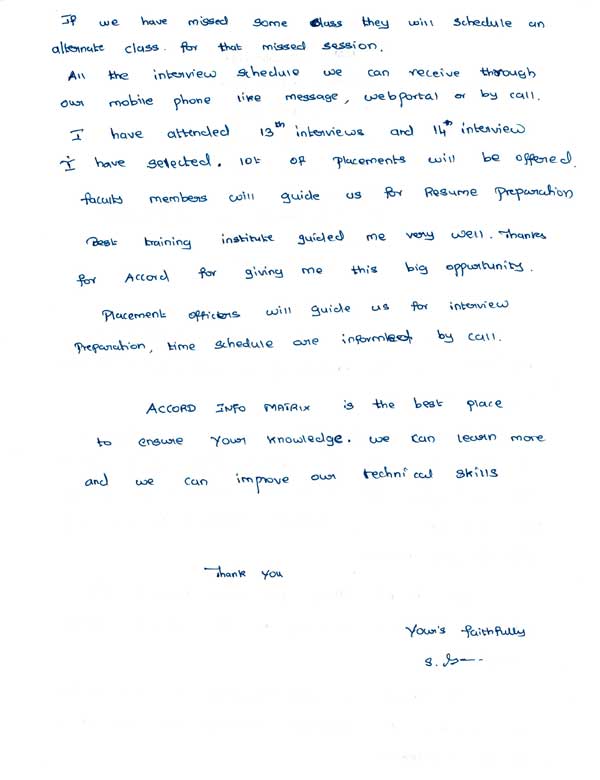 If we have missed some class they will schedule an
alternate class. for that missed session.
All the interview schedule we can receive through
our mobile phone like message, webportal or by call.
I have attended 13th interviews and 14th interview
I have selected. lot of placements will be offered.
faculty members will guide us for Resume Preparation
Best training institute guided me very well. Thanks
for Accord for giving me this big oppurtunity.
Placement officers will guide us for interview
Preparation, time schedule are informed by call.
ACCORD INFO MATRIX is the best place
to ensure your knowledge. we can learn more
and we can improve our technical skills
Thank you
Your's faithfully
S.